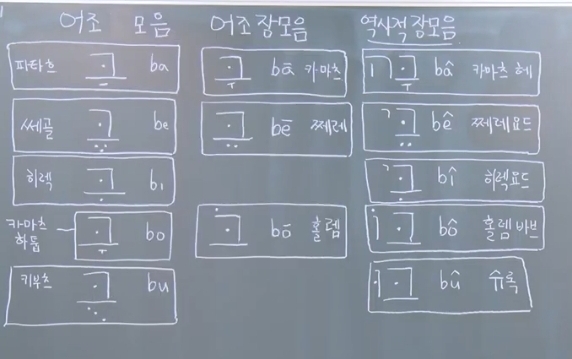 어조 모음 어조 장모음 역사적 장모음
파타흐 בַּ ba בָּ bā 카마츠 בָּה bâ 카마츠 헤
쎄골 בֶּ be בֵּ bē 쩨레 בֵּי bê 쩨레 요드
히렉 בִּ bi בִּי bî 히렉 요드
카마츠 하툽 בָּ bo בֹּ bō 홀렘 בּוֹ bô 홀렘 바브
키부츠 בֻּ bu בּוּ bû 슈룩